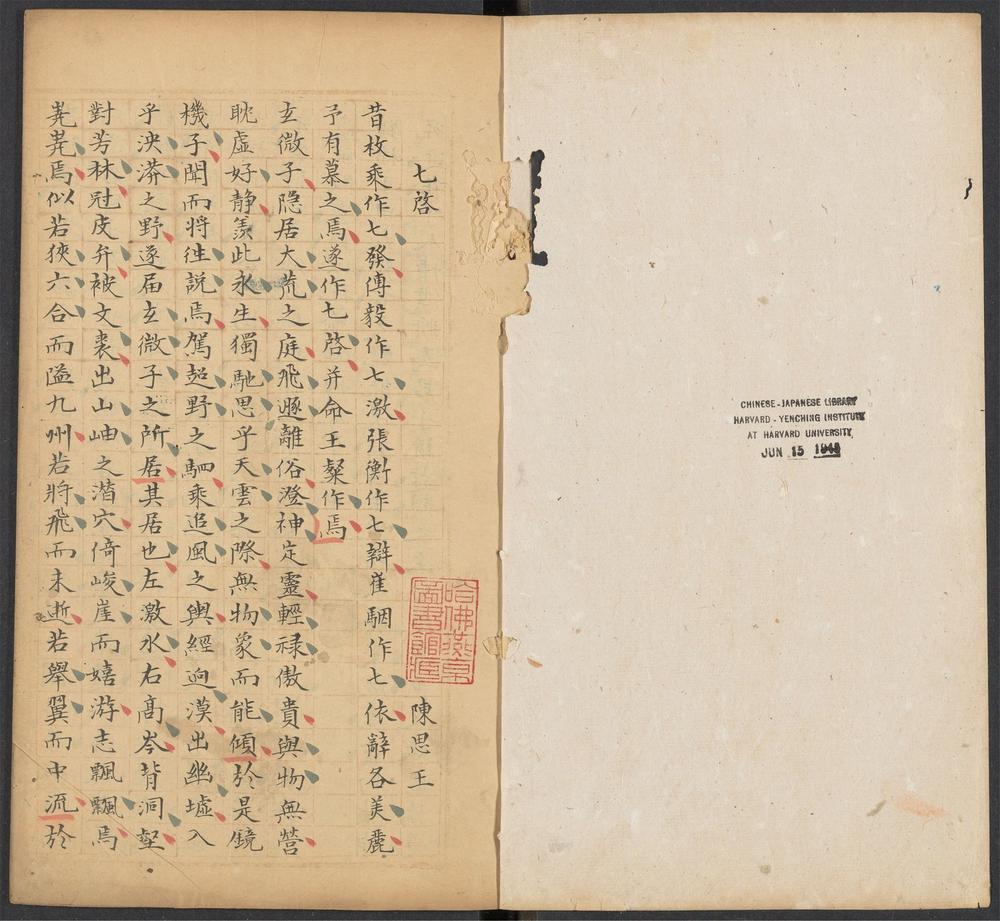 CHINESE-JAPANESE LIBRARY
HARVARD-YENCHING INSTITUTE
AT HARVARD UNIVERSITY
JUN 15 1940
七啓 陳思王
哈佛燕京
圖書館藏
昔枚乘作七發傅毅作七激張衡作七辯崔駰作七依辭各美麗
予有慕之焉遂作七啓并命王粲作焉
玄微子隐居大荒之庭飛遯離俗澄神定靈輕禄傲貴與物無營
耽虛好静羨此永生獨馳思乎天雲之際無物象而能傾於是鏡
機子聞而将徃說焉駕超野之駟乘追風之輿經逈漠出幽墟入
乎泱漭之野遂届玄微子之所居其居也左激水右髙岑背洞壑
對芳林冠皮弁被文裘出山岫之潜穴倚峻崖而嬉游志飄飄焉
嶤嶤焉似若狹六合而隘九州若将飛而未逝若舉翼而中流於